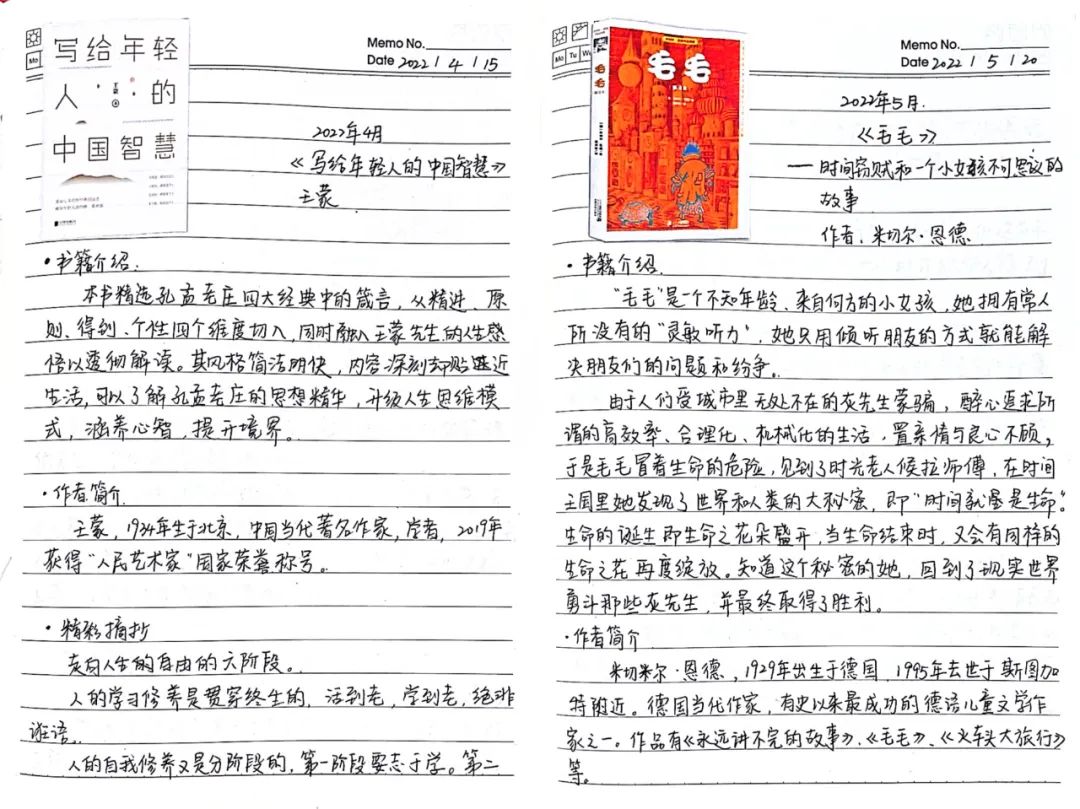 写给年轻
人 的
中国智慧
Mo
Memo No.
Date 2022 / 4 / 15
2022年4月
《写给年轻人的中国智慧》
王蒙
・书籍介绍:
本书精选孔孟老庄四大经典中的箴言,从精进、原
则、得到、个性四个维度切入,同时融入王蒙先生的人生感
悟以透彻解读。其风格简洁明快,内容深刻却贴近
生活,可以了解孔孟老庄的思想精华,升级人生思维模
式,涵养心智,提升境界。
・作者简介
王蒙,1934年生于北京,中国当代著名作家,学者,2019年
获得“人民艺术家”国家荣誉称号。
・精彩摘抄
走向人生的自由的六阶段。
人的学习修养是贯穿终生的,活到老,学到老,绝非
诳语。
人的自我修养又是分阶段的,第一阶段要志于学。第二
Mo Tu We
毛毛
毛毛
Memo No.
Date 2022 / 5 / 20
2022年5月.
《毛毛》
——时间窃贼和一个小女孩不可思议的
故事
作者:米切尔·恩德
・书籍介绍.
“毛毛”是个不知年龄、来自何方的小女孩,她拥有常人
所没有的“灵敏听力”,她只用倾听朋友的方式就能解
决朋友们的问题和纷争。
由于人们受城市里无处不在的灰先生蒙骗,醉心追求所
谓的高效率、合理化、机械化的生活,置亲情与良心不顾,
于是毛毛冒着生命的危险,见到了时光老人候拉师傅,在时间
王国里她发现了世界和人类的大秘密,即“时间就是生命”。
生命的诞生即生命之花朵盛开,当生命结束时,又会有同样的
生命之花再度绽放。知道这个秘密的她,回到了现实世界
勇斗那些灰先生,并最终取得了胜利。
・作者简介
米切尔·恩德,1929年出生于德国,1995年去世于斯图加
特附近。德国当代作家,有史以来最成功的德语儿童文学作
家之一。作品有《永远讲不完的故事》、《毛毛》、《火车头大旅行》
等。